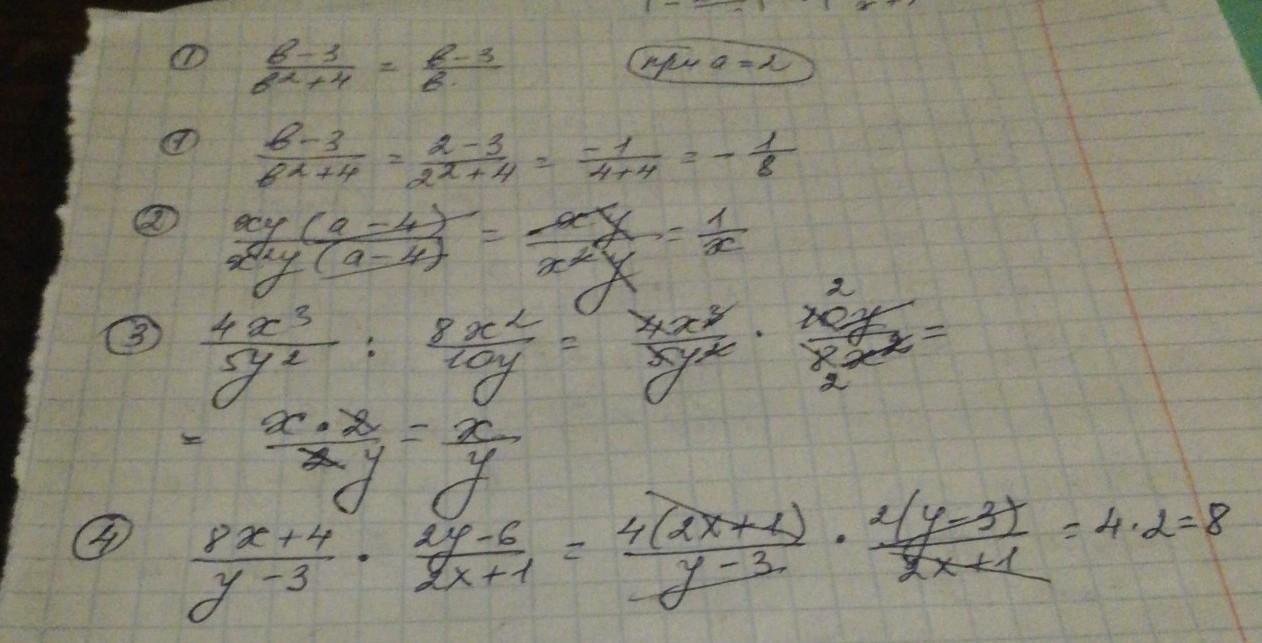 ① (в-3)/(в²+4) = (в-3)/в при а=2
① (в-3)/(в²+4) = (2-3)/(2²+4) = -1/(4+4) = -1/8
② xy(а-4)/x²y(а-4) = xy/x²y = 1/x
③ 4x³/5y² : 8x²/10y = 4x³/5y² · 10y/8x² = 2 2
= x·2/2y = x/y
④ (8x+4)/(y-3) · (2y-6)/(2x+1) = 4(2x+1)/(y-3) · 2(y-3)/(2x+1) = 4·2=8